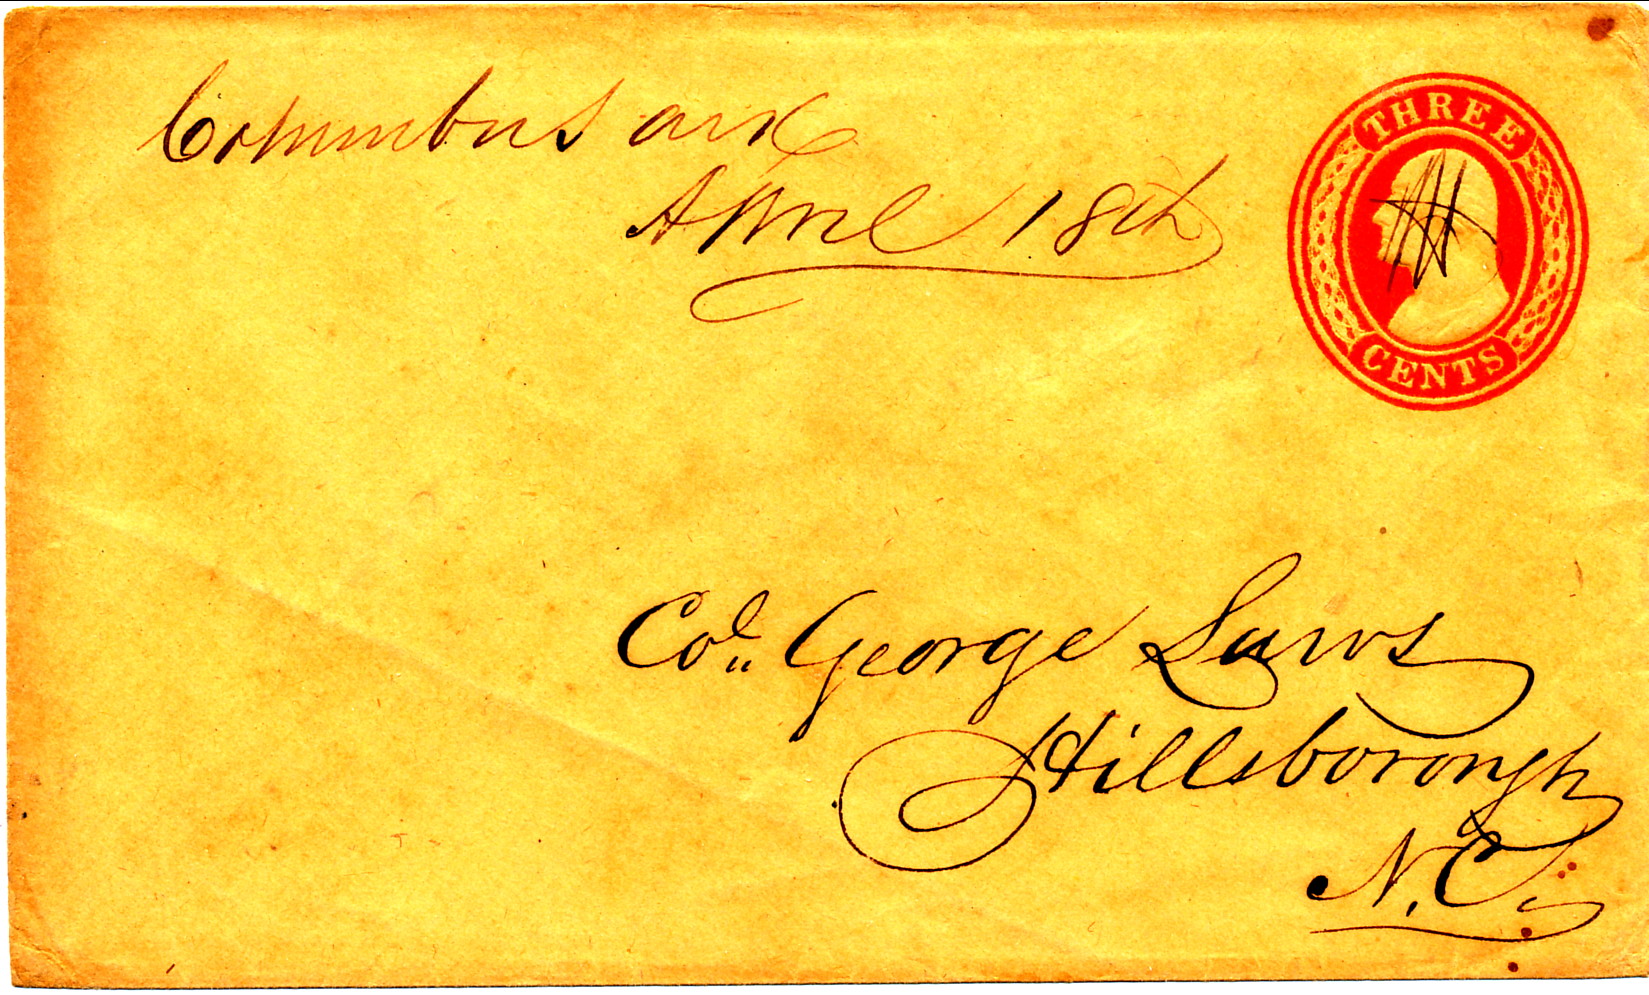 Columbus ark
April 18th
THREE
CENTS
Col. George Laws
Hillsborough
N.C.